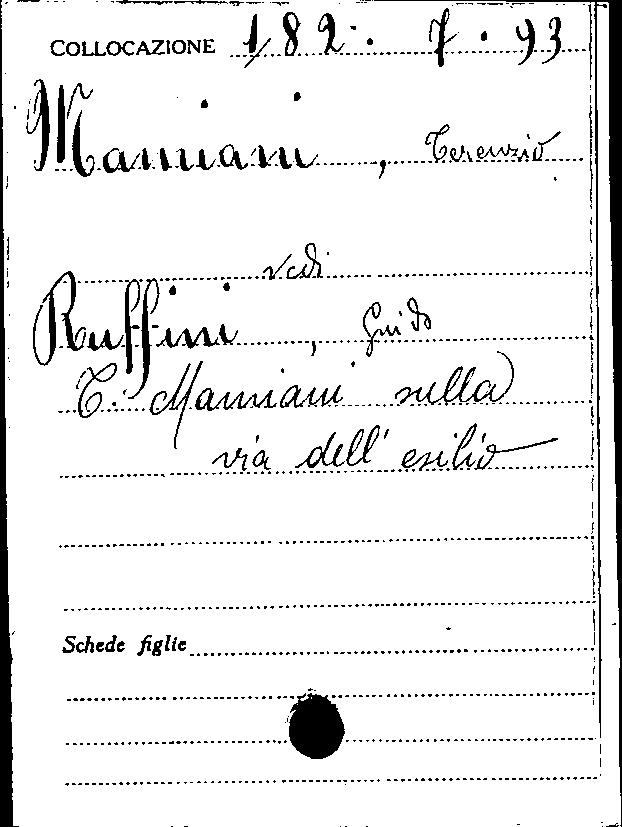 COLLOCAZIONE 182. 7. 93
Mamiani, Terenzio
vedi
Ruffini, Guido
T. Mamiani sulla
via dell' esilio
Schede figlie